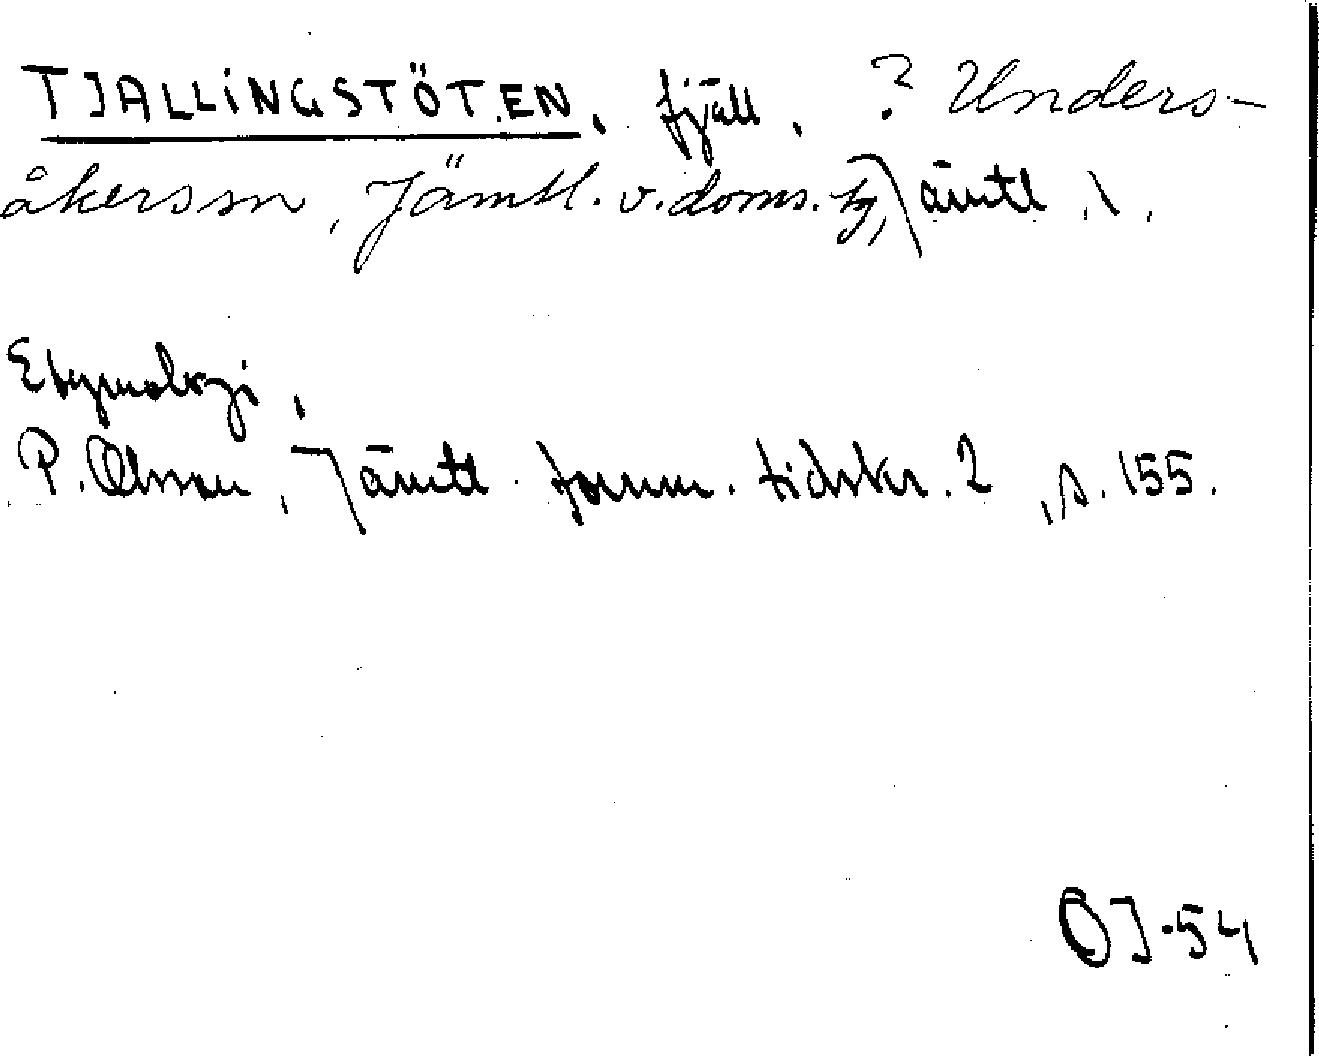 TJALLINGSTÖTEN, fjäll, ? Unders-
åkers sn, Jämtl. v. doms. tg, Jämtl.,
Etymologi,
P. Olsson, Jämtl. fornm. tidskr. 2, s. 155.
OJ-54